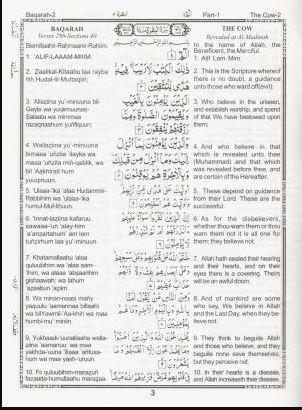 Baqarah-2
Part-1
The Cow-2
BAQARAH
Verses 286-Sections 40
Bismillaahir-Rahmaanir-Rahiim.
1. 'ALIF-LAAAM-MIIM.
2. Zaalikal-Kitaabu laa rayba
fiih.Hudal-lil-Muttaqiin;
3. 'Allaziina yu'-minuuna bil-
Gaybi wa yuqiimuunas-
Salaata wa mimmaa
razaqnaahum yunfiquun;
4. Wallaziina yu'-minuuna
bimaaa 'unzila 'ilayka wa
maaa 'unzila min-qablik, wa
bil 'Aakhirati hum
yuuqinuun.
5. 'Ulaaa-'ika 'alaa Hudammir-
Rabbihim wa 'ulaaa-'ika
humul-Muf-lihuun.
6. 'Innal-laziina kafaruu
sawaaa-'un 'alay-him
'a-'anzartahum' am lam
tunzirhum laa yu'-minuun.
7. Khatamallaahu 'alaa
quluubihim wa 'alaa sam-
'ihim, wa 'alaaa 'absaarihim
gishaawah; wa lahum
'azaabun 'aziim.
8. Wa minan-naasi mañy
yaquulu 'aamannaa billaahi
wa bil'Yawmil-'Aa-khiri wa maa
humbi-mu' miniin.
9. Yukhaadi-'uunallaaha walla-
ziina 'aamanuu; wa maa
yakhda-'uuna 'illaaa 'anfusa-
hum wa maa yash-'uruun.
10. Fii quluubihim-marazun
fazaada-humullaahu marazaa.
بسم الله الرحمن الرحيم
الم
ذلك الكتب لا ريب فيه
هدى للمتقين
الذين يؤمنون بالغيب
ويقيمون الصلوة ومما
رزقنهم ينفقون
والذين يؤمنون بما انزل
اليك وما انزل من قبلك
وبالاخرة هم يوقنون
THE COW
Revealed at Al-Madinah
In the name of Allah, the
Beneficent, the Merciful.
1. Alif. Lam. Mim.
2. This is the Scripture whereof
there is no doubt, a guidance
unto those who ward off(evil):
3. Who believe in the unseen,
and establish worship, and spend
of that We have bestowed upon
them;
4. And who believe in that
which is revealed unto thee
(Muhammad) and that which
was revealed before thee, and
are certain of the Hereafter.
5. These depend on guidance
from their Lord. These are the
successful.
6. As for the disbelievers,
whether thou warn them or thou
warn them not it is all one for
them; they believe not.
7. Allah hath sealed their hearing
and their hearts, and on their
eyes there is a covering. Theirs
will be an awful doom.
8. And of mankind are some
who say, We believe in Allah
and the Last Day, when they be-
lieve not.
9. They think to beguile Allah
and those who believe, and they
beguile none save themselves;
but they perceive not.
10. In their hearts is a disease,
and Allah increaseth their disease.
3